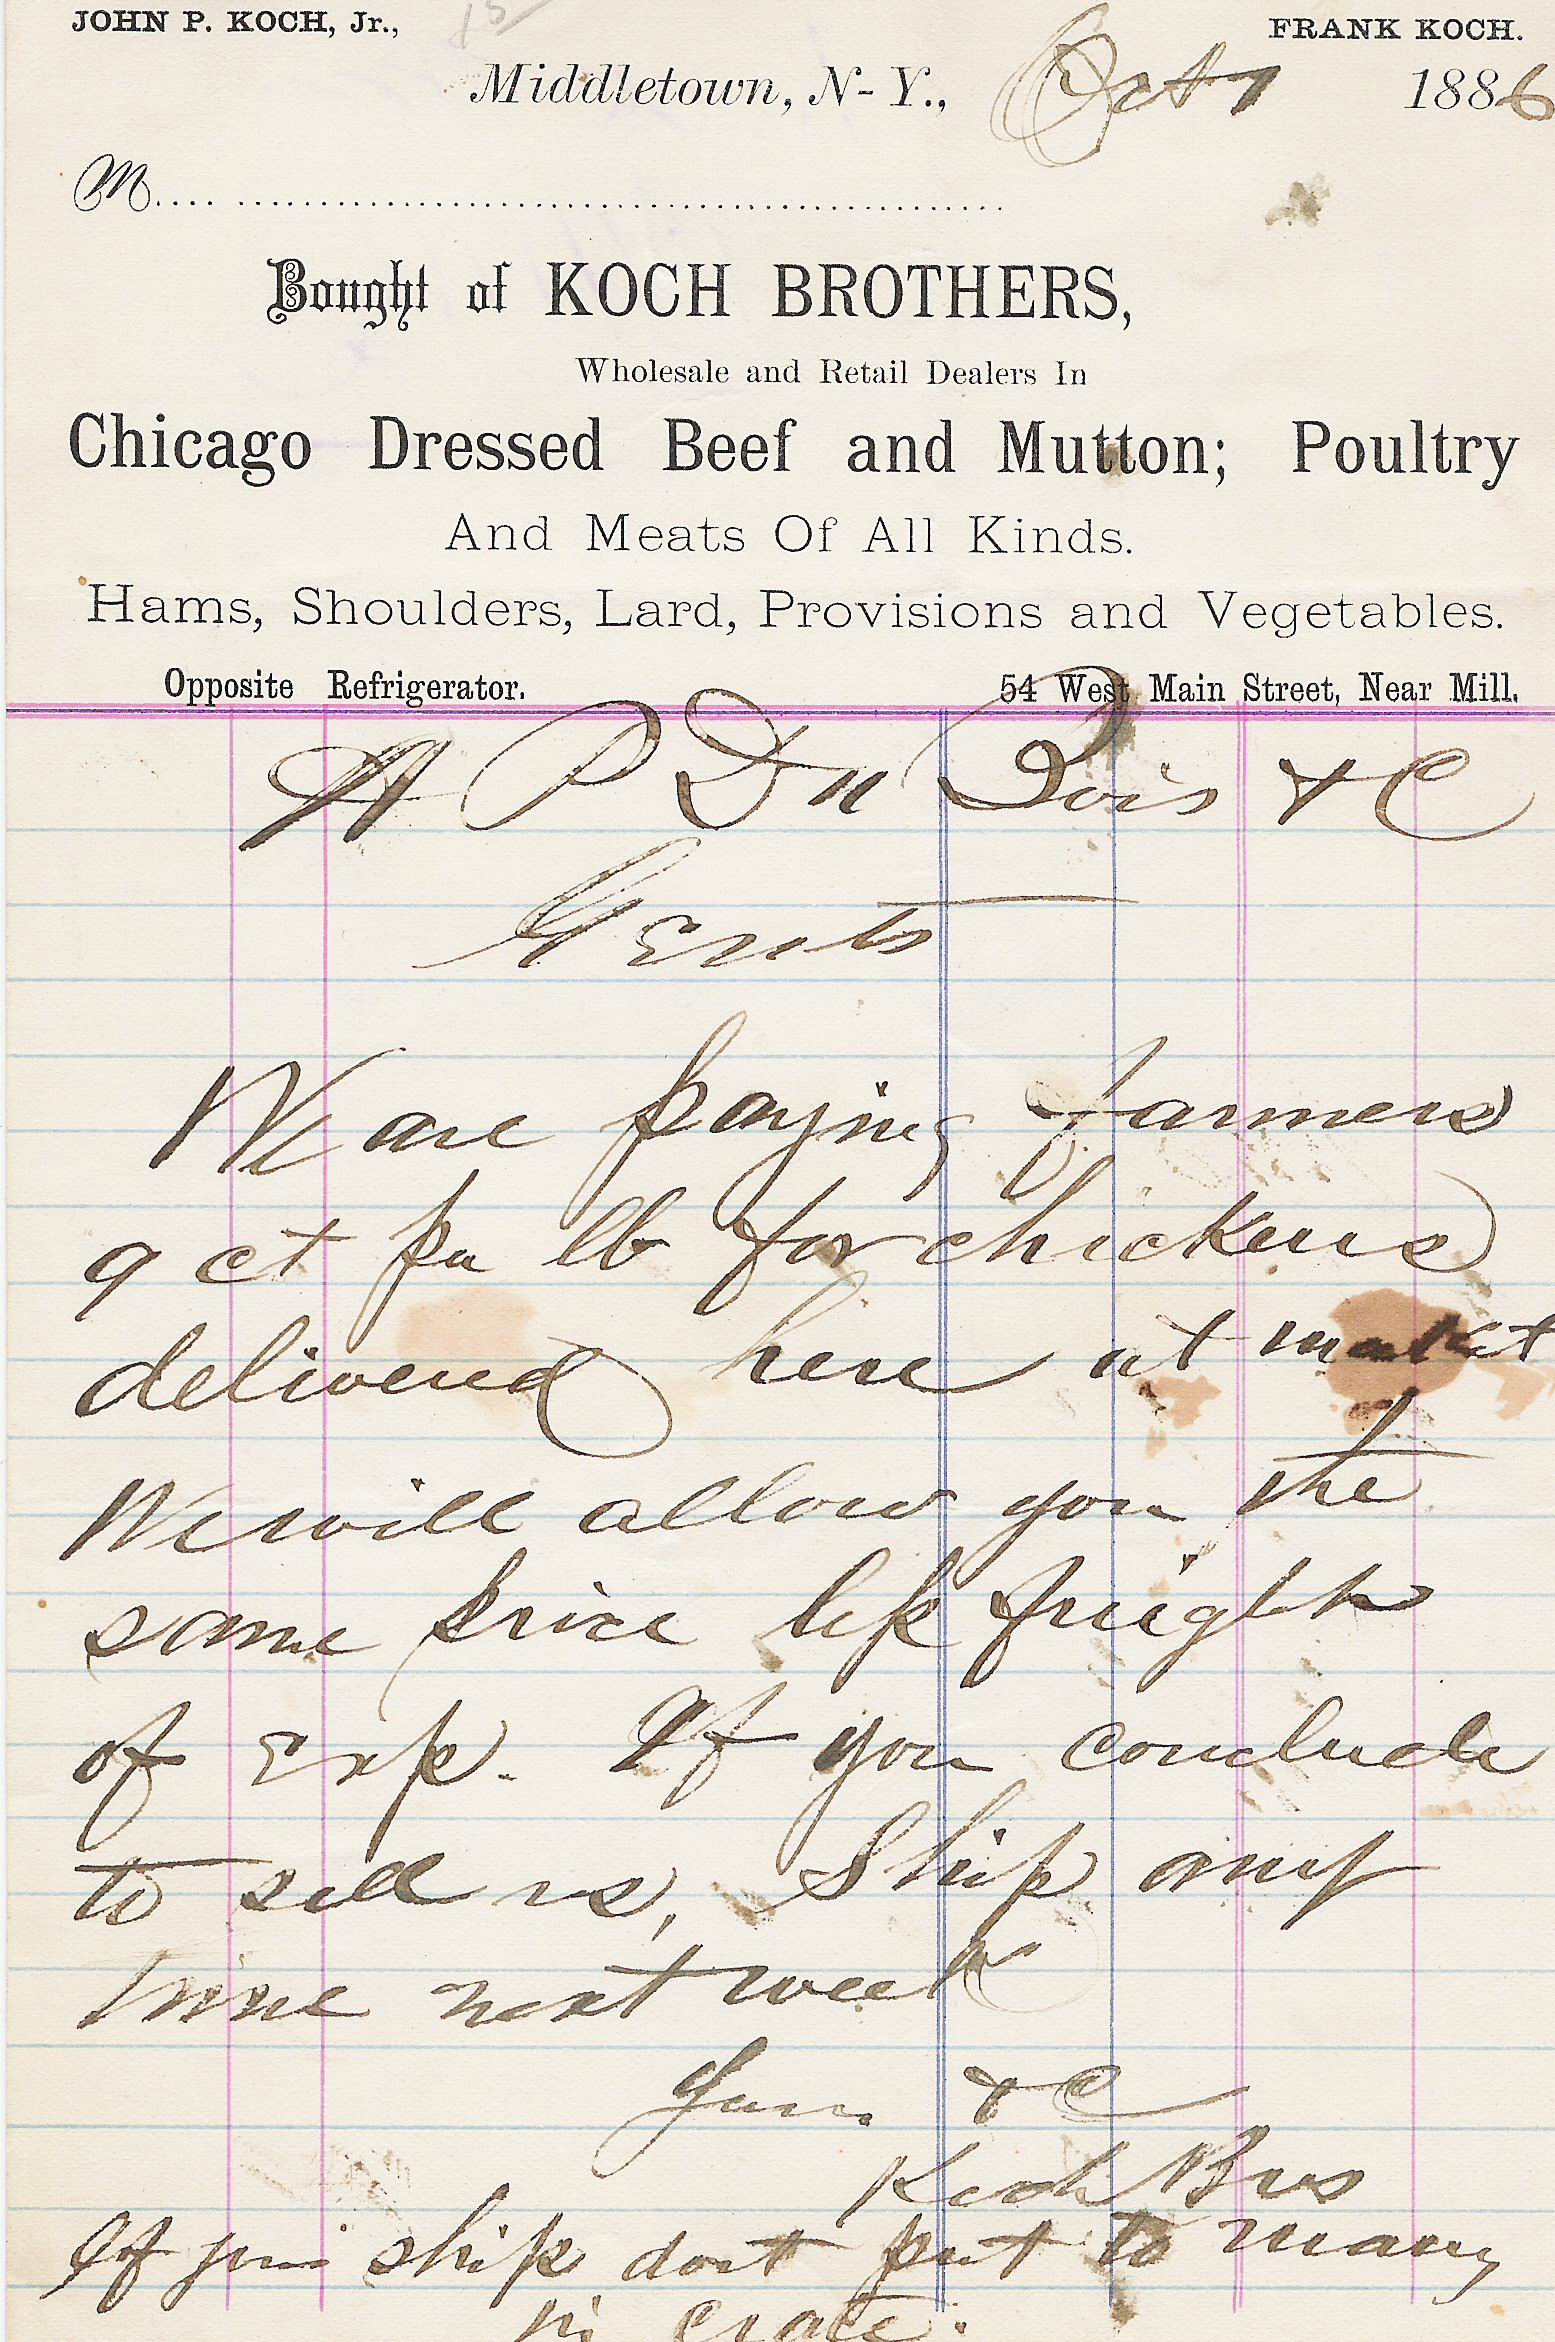 JOHN P. KOCH, Jr., FRANK KOCH.
Middletown, N-Y., Oct 1 1886
M.... 
Bought of KOCH BROTHERS,
Wholesale and Retail Dealers In
Chicago Dressed Beef and Mutton; Poultry
And Meats Of All Kinds.
Hams, Shoulders, Lard, Provisions and Vegetables.
Opposite Refrigerator. 54 West Main Street, Near Mill.
A P Du Bois & C
Gents
We are paying farmers
9 ct per lb for chickens
delivered here at market
We will allow you the
same price less freight
of Exp. If you conclude
to sell us, Ship any
time next week
Yours & C
Koch Bros
If you ship dont put to many
in crate.